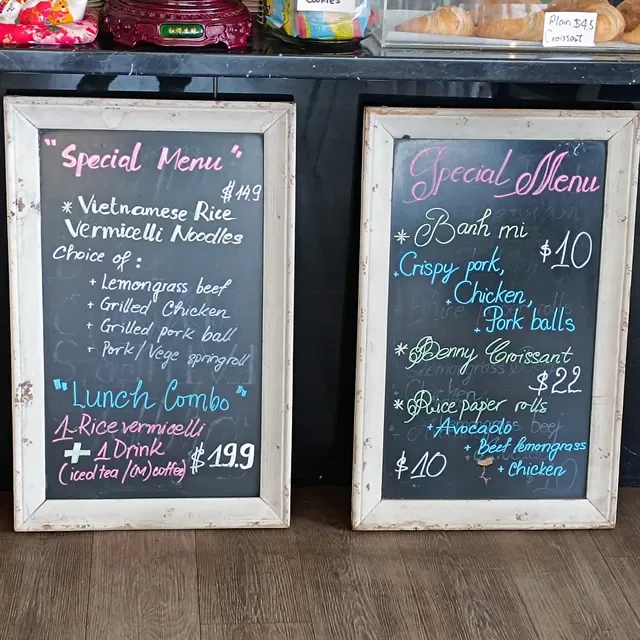 Cookies
Plain $4.5
Croissant
"Special Menu"
$14.9
* Vietnamese Rice
Vermicelli Noodles
Choice of :
+ Lemongrass beef
+ Grilled Chicken
+ Grilled pork ball
+ Pork/Vege springroll
"Lunch Combo"
1 Rice vermicelli
+ 1 Drink
(iced tea/(M) coffee)
$19.9
Special Menu
* Banh mi
$10
. Crispy pork,
. Chicken,
. Pork balls
* Benny Croissant
$22
* Rice paper rolls
+ Avocado
+ Beef lemongrass
$10
+ Chicken